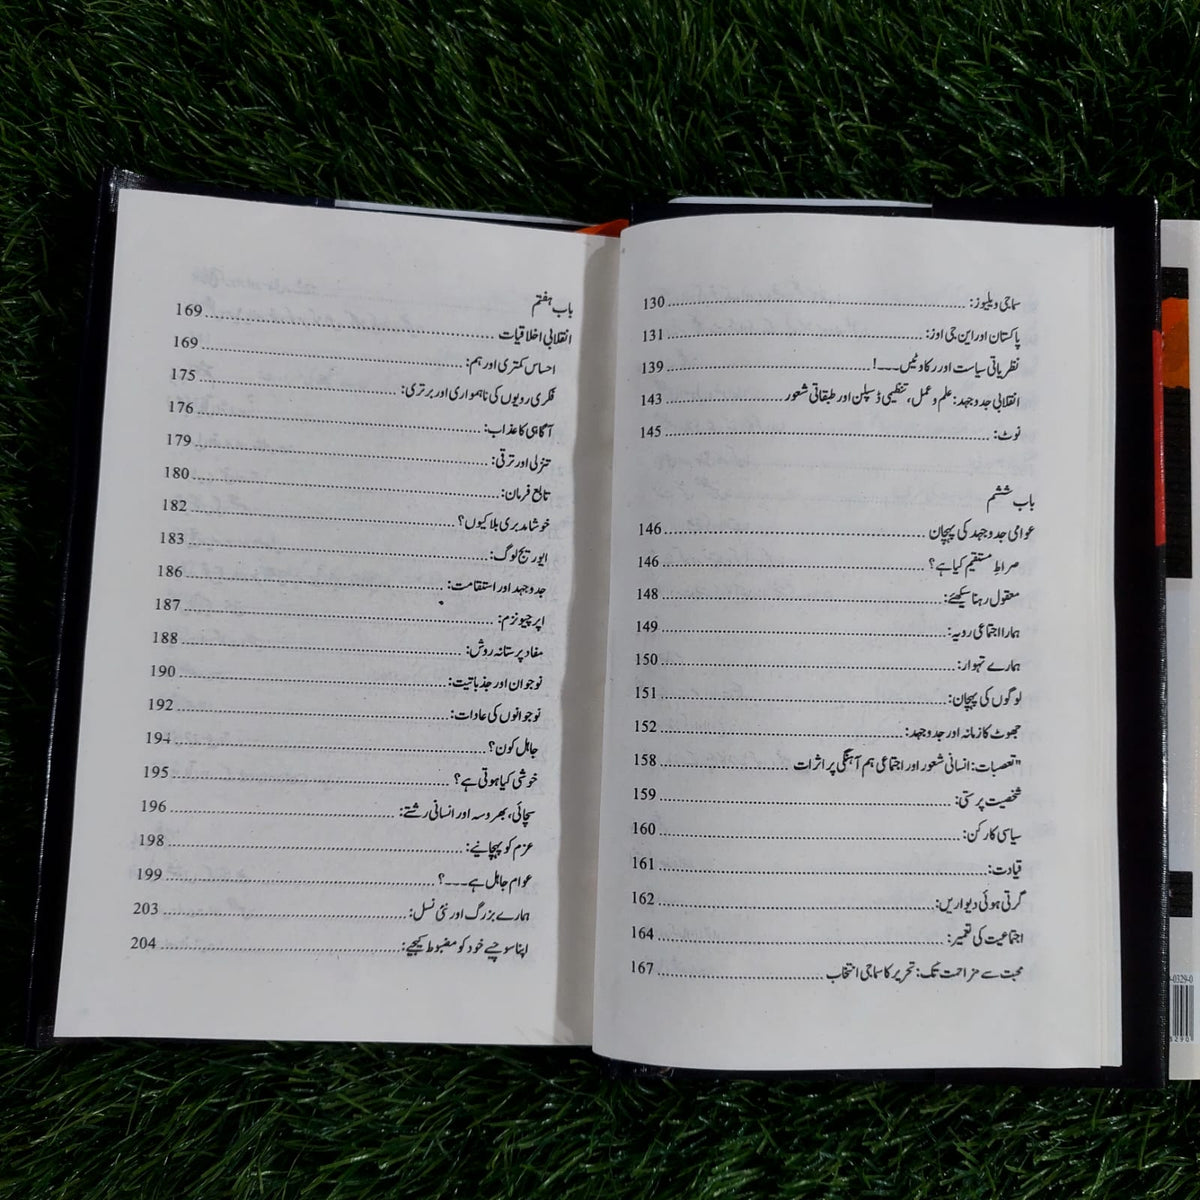 سماجی ویلیوز: 130
پاکستان اور این جی اوز: 131
نظریاتی سیاست اور رکاوٹیں۔۔۔! 139
انقلابی جدوجہد: علم و عمل، تنظیمی ڈسپلن اور طبقاتی شعور 143
نوٹ: 145
باب ششم
عوامی جدوجہد کی پہچان 146
صراطِ مستقیم کیا ہے؟ 146
معقول رہنا سیکھئے: 148
ہمارا اجتماعی رویہ: 149
ہمارے تہوار: 150
لوگوں کی پہچان: 151
جھوٹ کا زمانہ اور جدوجہد: 152
"تعصبات: انسانی شعور اور اجتماعی ہم آہنگی پر اثرات 158
شخصیت پرستی: 159
سیاسی کارکن: 160
قیادت: 161
گرتی ہوئی دیواریں: 162
اجتماعیت کی تعمیر: 164
محبت سے مزاحمت تک: تحریر کا سماجی انتخاب 167
باب ہفتم
انقلابی اخلاقیات 169
احساس کمتری اور ہم: 169
فکری رویوں کی ناہمواری اور برتری: 175
آگاہی کا عذاب: 176
تنزلی اور ترقی: 179
تابع فرمان: 180
خوشامد بری بلا کیوں؟ 182
ایوریج لوگ: 183
جدوجہد اور استقامت: 186
اپرچیونزم: 187
مفاد پرستانہ روش: 188
نوجوان اور جذباتیت: 190
نوجوانوں کی عادات: 192
جاہل کون؟ 194
خوشی کیا ہوتی ہے؟ 195
سچائی، بھروسہ اور انسانی رشتے: 196
عزم کو پہچانیے: 198
عوام جاہل ہے۔۔۔؟ 199
ہمارے بزرگ اور نئی نسل: 203
اپنا سوچیے خود کو مضبوط کیجیے: 204
0329-0